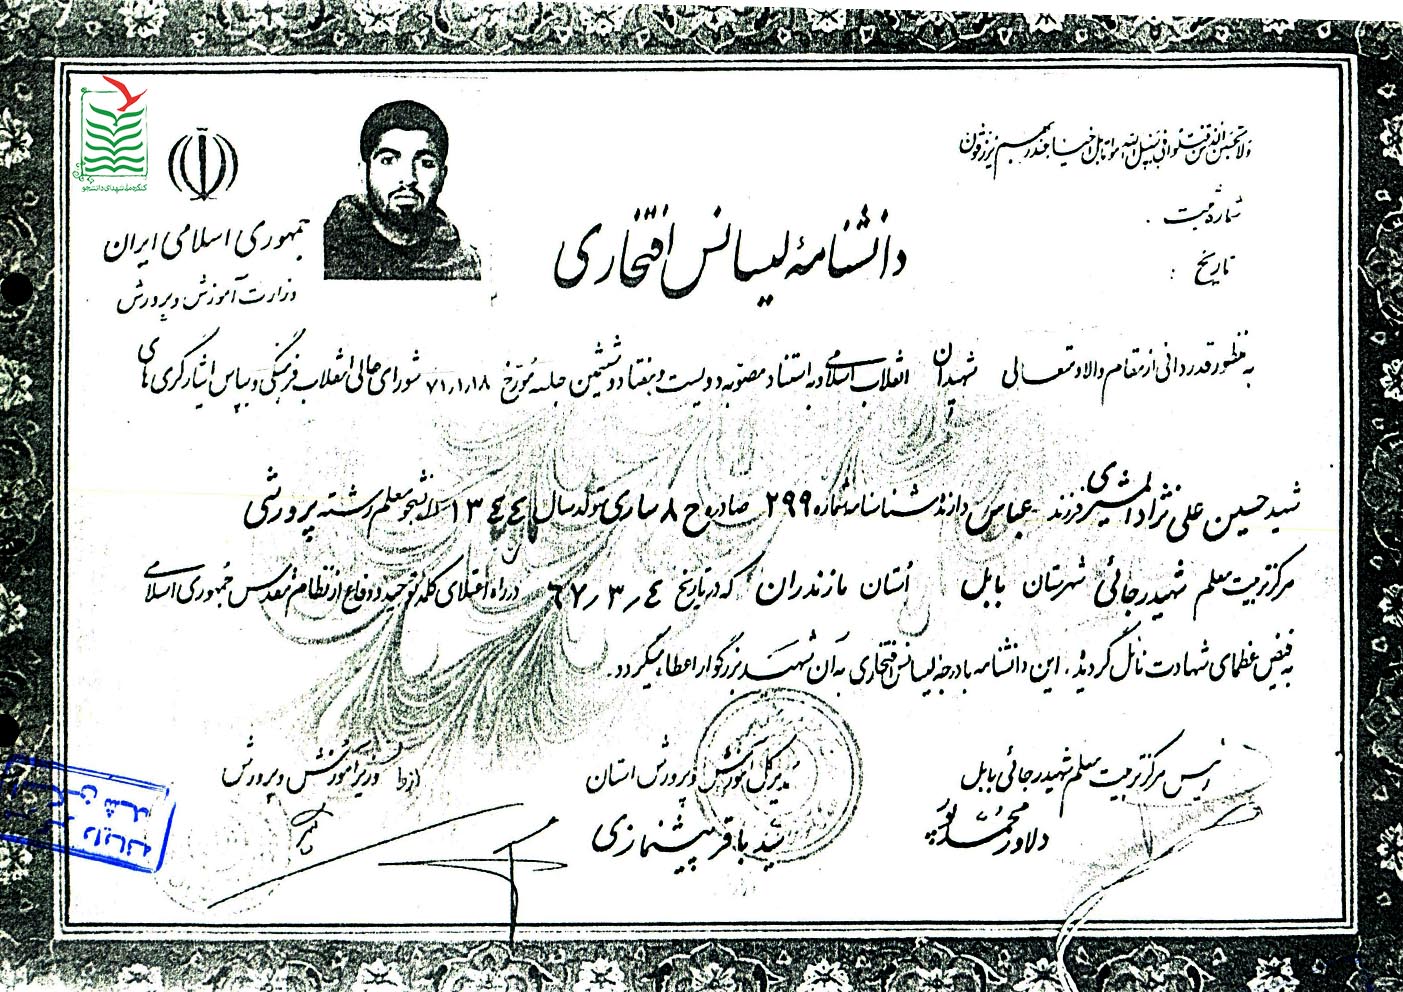 ولاتحسبن الذین قتلوا فی سبیل الله امواتا بل احیاء عند ربهم یرزقون
شماره ثبت :
تاریخ :
کنگره ملی شهدای دانشجو
جمهوری اسلامی ایران
وزارت آموزش و پرورش
دانشنامهٔ لیسانس افتخاری
به منظور قدردانی از مقام والا و متعالی شهیدان انقلاب اسلامی و به استناد مصوبه دویست و هفتاد و ششمین جلسه مورخ ۷۱٫۱٫۱۸ شورای عالی انقلاب فرهنگی و بپاس ایثارگری های
شهید حسین علی نژاد المشیری فرزند عباس دارنده شناسنامه شماره ۲۹۹ صادره ح ۸ ساری متولد سال ۱۳٤٤ دانشجو معلم رشته پرورشی
مرکز تربیت معلم شهید رجائی شهرستان بابل استان مازندران که در تاریخ ٦٧٫٣٫٤ در راه اعتلای کلمه توحید و دفاع از نظام مقدس جمهوری اسلامی
به فیض عظمای شهادت نائل گردید، این دانشنامه با درجه لیسانس افتخاری به آن شهید بزرگوار اعطا میگردد.
رئیس مرکز تربیت معلم شهید رجائی بابل
محمد دلاور
مدیرکل آموزش و پرورش استان
سید باقر پیشنمازی
از طرف وزیر آموزش و پرورش